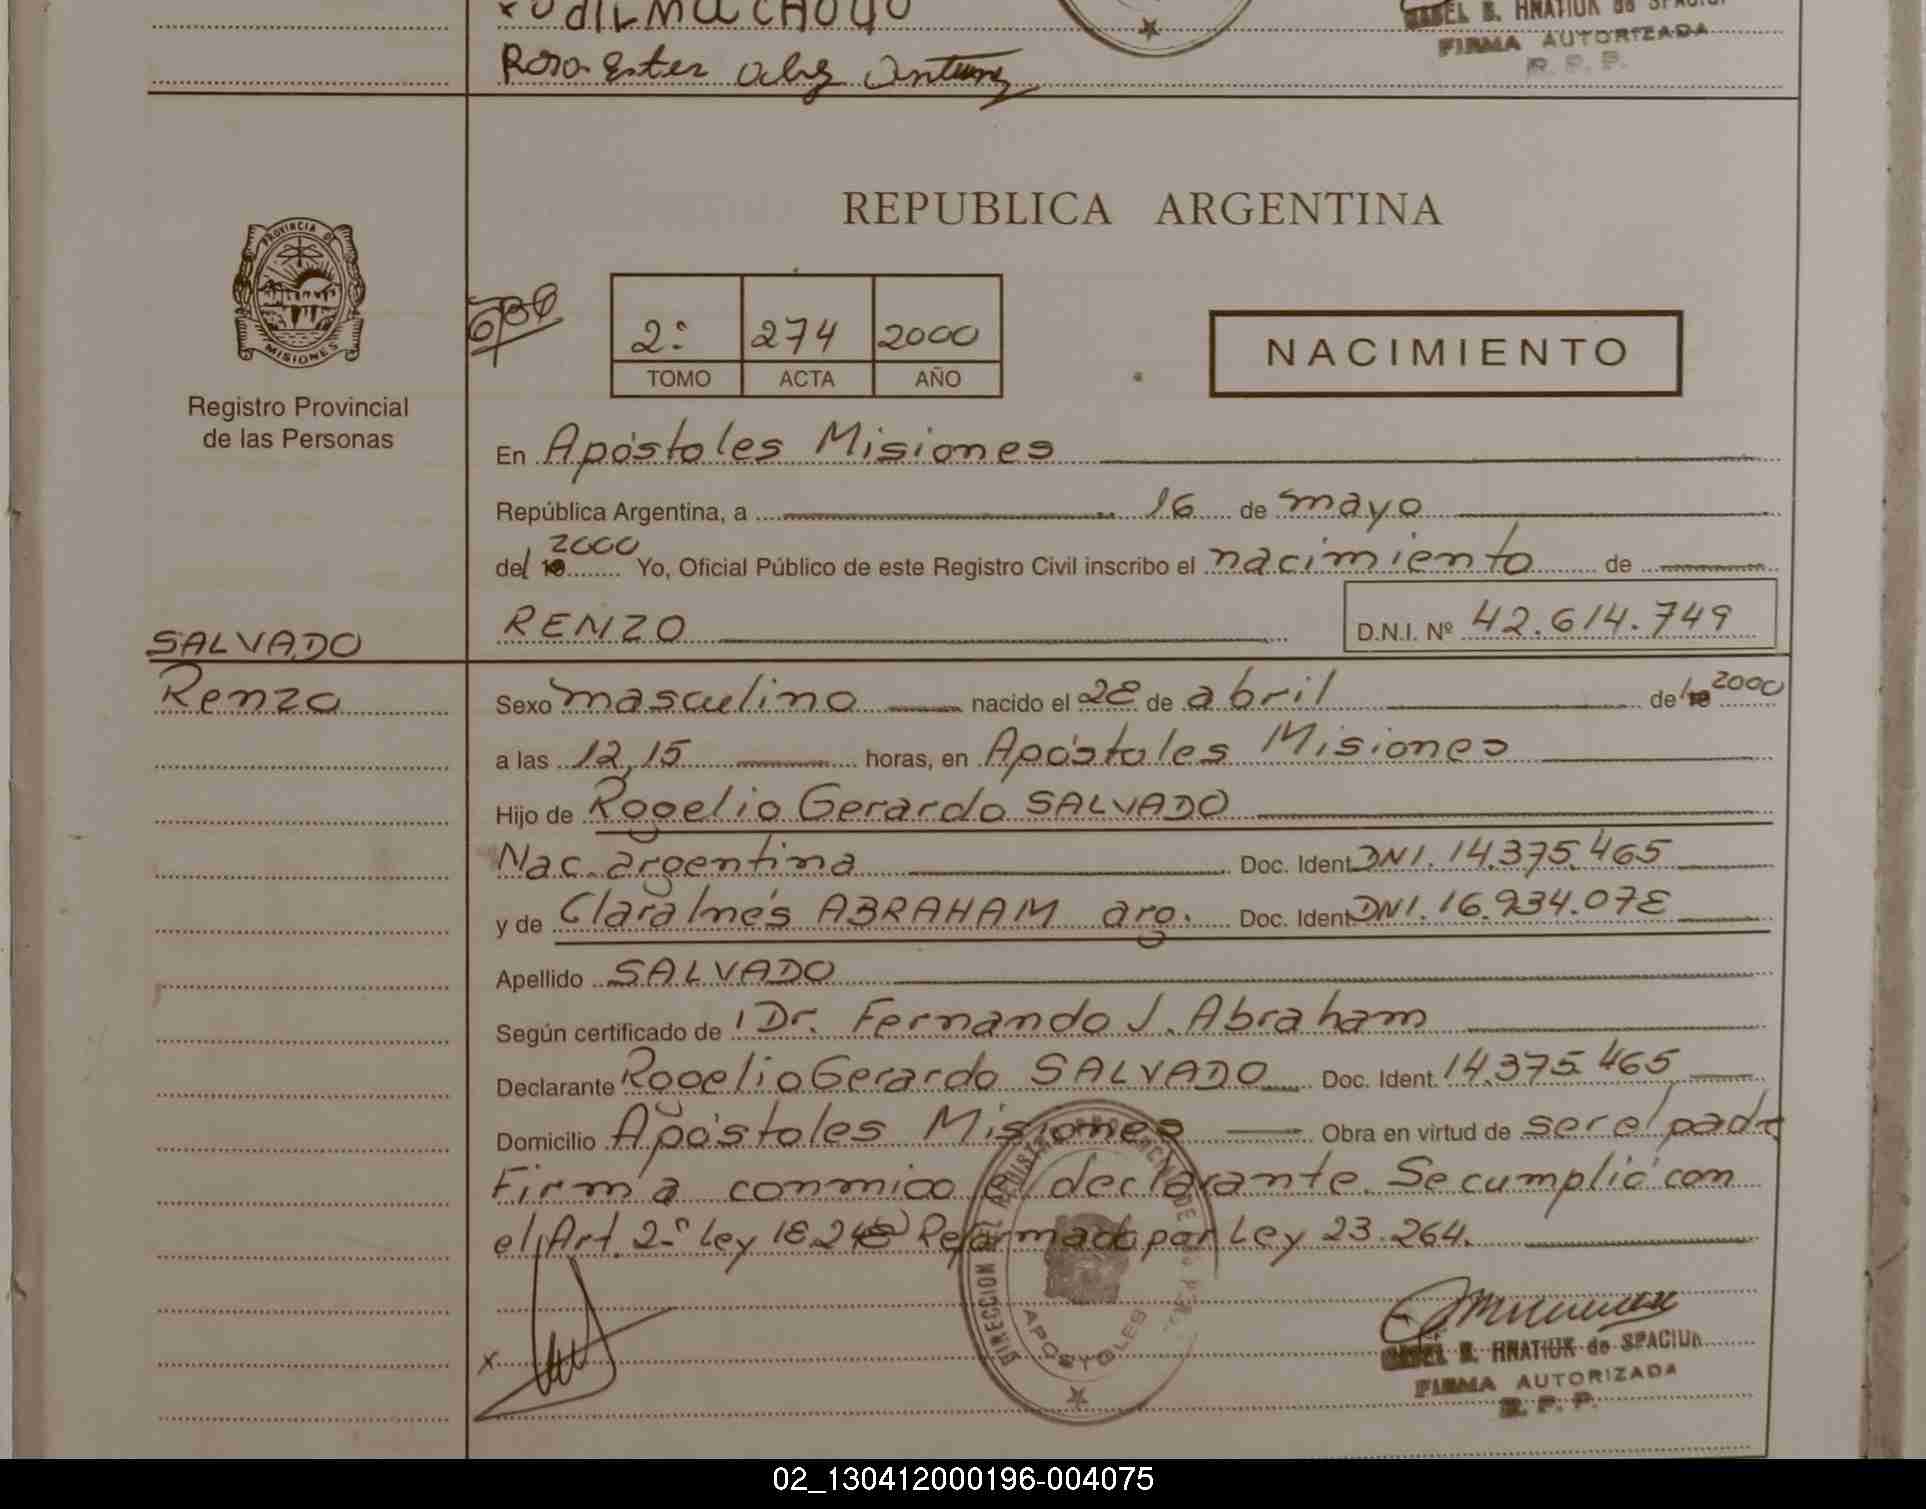 Rosa Ester
FIRMA AUTORIZADA
R. P. P.
REPUBLICA ARGENTINA
PROVINCIA DE
MISIONES
Registro Provincial
de las Personas
2º 274 2000
TOMO ACTA AÑO
NACIMIENTO
En Apóstoles Misiones
República Argentina, a 16 de mayo
del 2000 Yo, Oficial Público de este Registro Civil inscribo el nacimiento de
RENZO D.N.I. Nº 42.614.749
SALVADO
Renzo
Sexo masculino nacido el 28 de abril del 2000
a las 12,15 horas, en Apóstoles Misiones
Hijo de Rogelio Gerardo SALVADO
Nac. argentina Doc. Ident. DNI. 14.375.465
y de Clara Inés ABRAHAM arg. Doc. Ident. DNI. 16.934.078
Apellido SALVADO
Según certificado de Dr. Fernando J. Abraham
Declarante Rogelio Gerardo SALVADO Doc. Ident. 14.375.465
Domicilio Apóstoles Misiones Obra en virtud de ser el padre
Firma conmigo el declarante. Se cumplió con
el Art. 2º Ley 18.248 Reformado por Ley 23.264.
APOSTOLES
x
HNATIUK de SPACIUK
FIRMA AUTORIZADA
R. P. P.
02_130412000196-004075